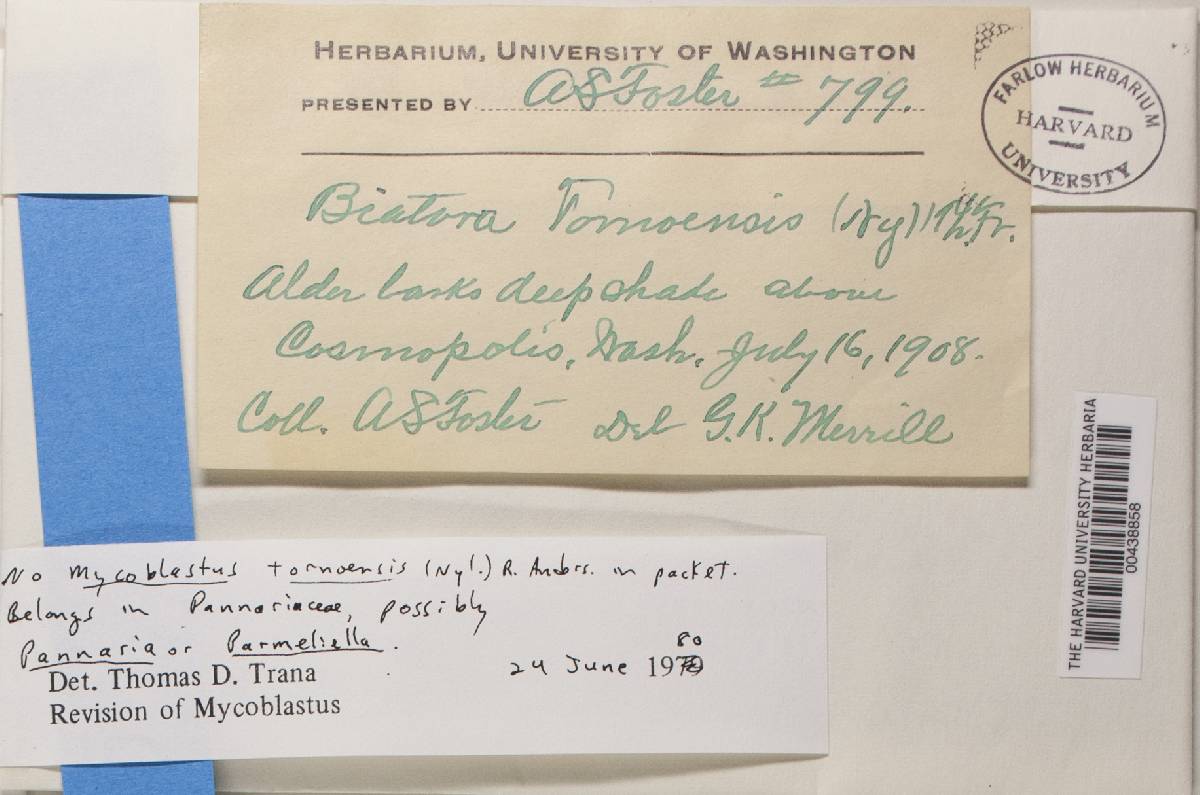 HERBARIUM, UNIVERSITY OF WASHINGTON
PRESENTED BY A S Foster # 799.
Biatora Tornoensis (Ny) Th. Fr.
Alder barks deep shade above
Cosmopolis, Wash. July 16, 1908.
Coll. A S Foster Det G. K. Merrill
FARLOW HERBARIUM
HARVARD
UNIVERSITY
THE HARVARD UNIVERSITY HERBARIA
00438858
No Mycoblastus tornoensis (Nyl.) R. Anders. in packet.
Belongs in Pannariaceae, possibly
Pannaria or Parmeliella.
Det. Thomas D. Trana
24 June 1980
Revision of Mycoblastus